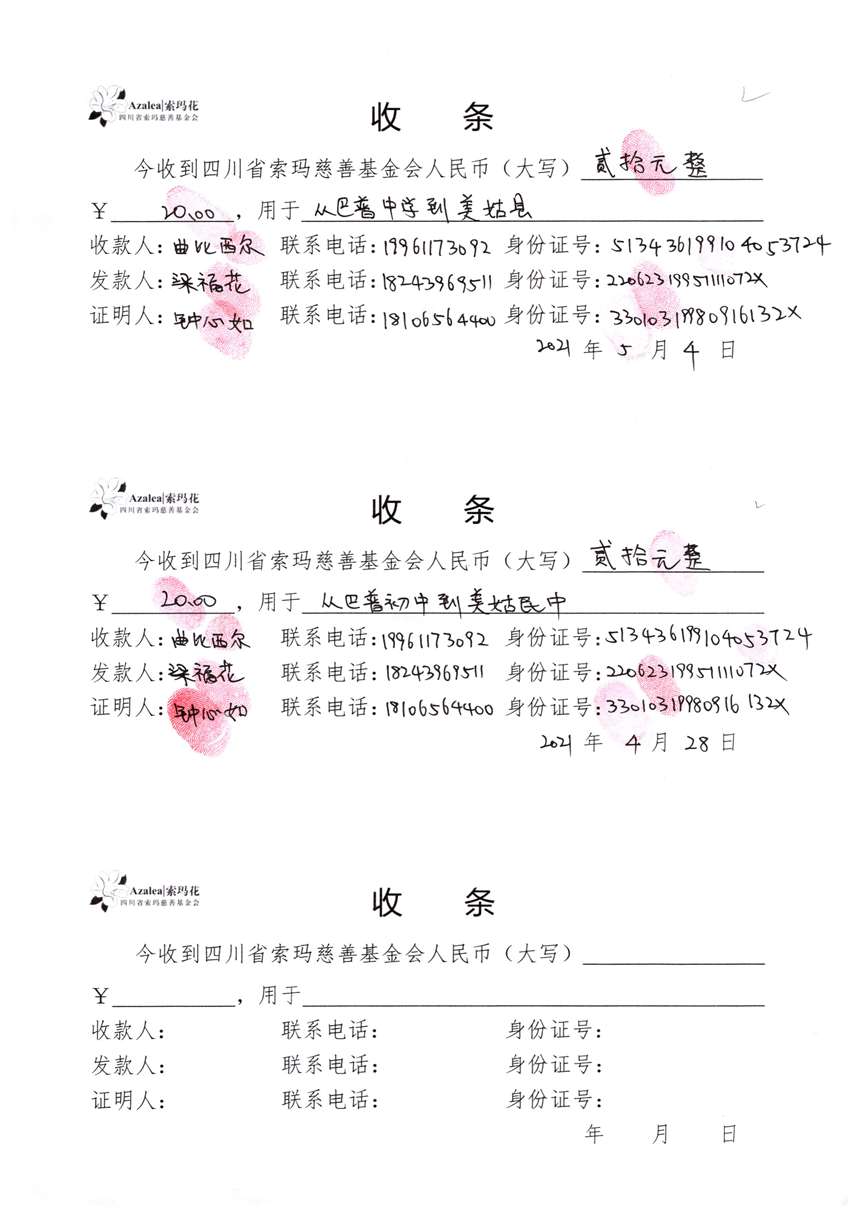 Azalea|索玛花
四川省索玛慈善基金会
收 条
今收到四川省索玛慈善基金会人民币（大写）贰拾元整
￥20.00，用于从巴普中学到美姑县
收款人：曲比西尔 联系电话：19961173092 身份证号：513436199104053724
发款人：梁福花 联系电话：18243969511 身份证号：22062319951111072X
证明人：钟心如 联系电话：18106564400 身份证号：33010319980916132X
2021 年 5 月 4 日
Azalea|索玛花
四川省索玛慈善基金会
收 条
今收到四川省索玛慈善基金会人民币（大写）贰拾元整
￥20.00，用于从巴普初中到美姑民中
收款人：曲比西尔 联系电话：19961173092 身份证号：513436199104053724
发款人：梁福花 联系电话：18243969511 身份证号：22062319951111072X
证明人：钟心如 联系电话：18106564400 身份证号：33010319980916132X
2021 年 4 月 28 日
Azalea|索玛花
四川省索玛慈善基金会
收 条
今收到四川省索玛慈善基金会人民币（大写）
￥，用于
收款人： 联系电话： 身份证号：
发款人： 联系电话： 身份证号：
证明人： 联系电话： 身份证号：
年 月 日